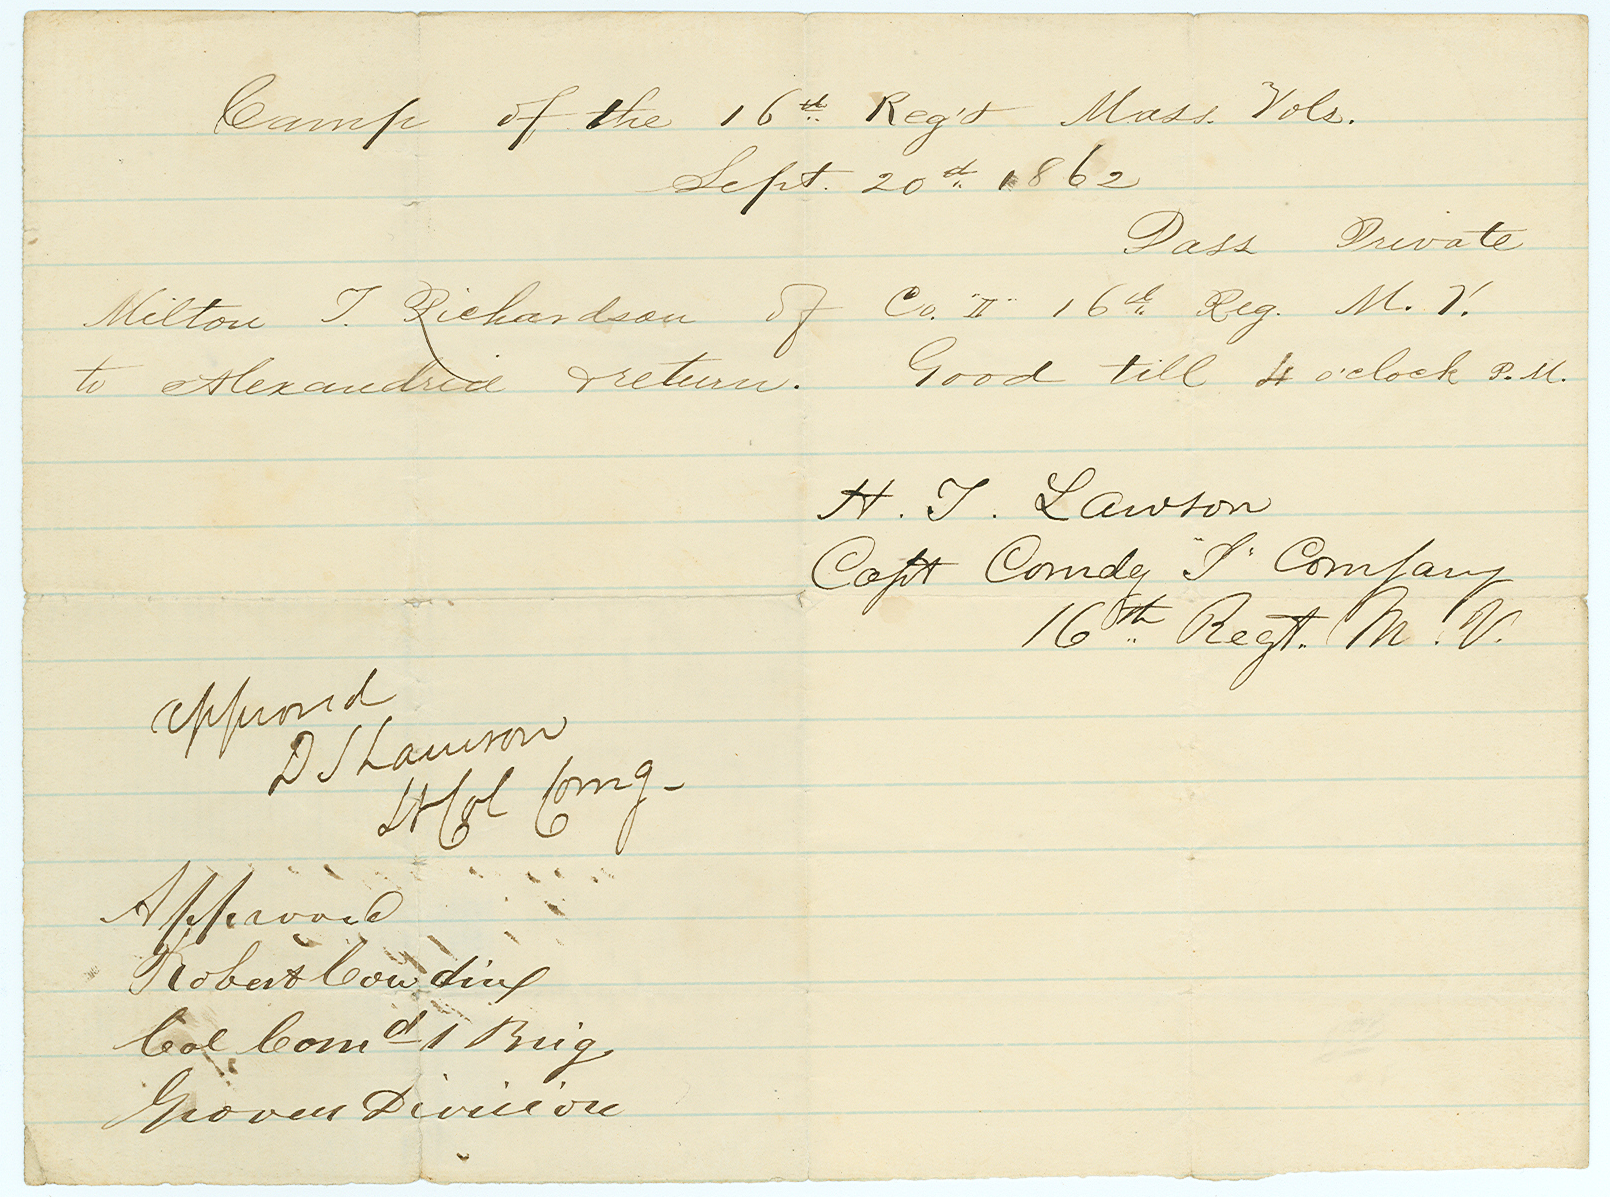 Camp of the 16th Reg't Mass. Vols.
Sept. 20th 1862
Pass Private
Milton T. Richardson of Co. "I" 16th Reg. M. V.
to Alexandria & return. Good till 4 o'clock P.M.
H. T. Lawson
Capt Comdg "I" Company
16th Regt. M. V.
approved
D S Lamson
Lt Col Comg
Approved
Robert Cowdin
Col Comd 1 Brig
Grovers Division